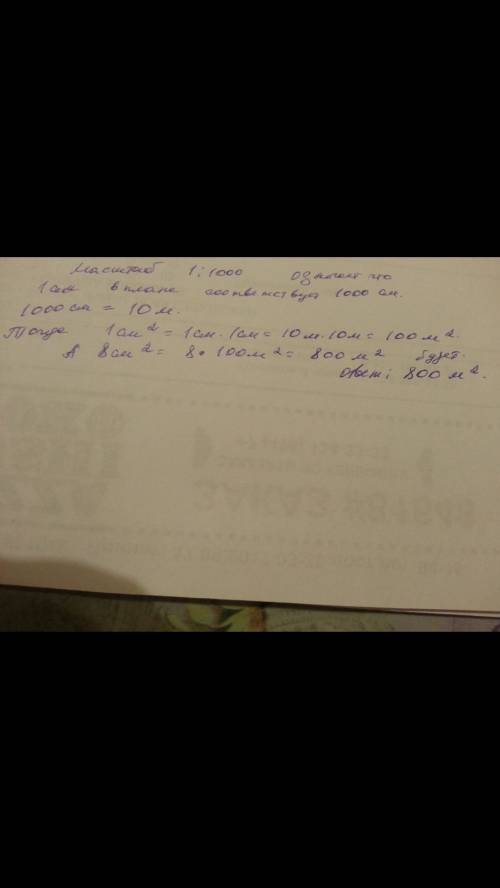 Масштаб 1:1000 означает что
1см в плане соответствует 1000 см.
1000 см = 10 м.
Тогда 1 см² = 1см · 1см = 10 м · 10м = 100 м².
А 8 см² = 8 · 100 м² = 800 м² будет.
Ответ: 800 м².
ЗАКАЗ #81648